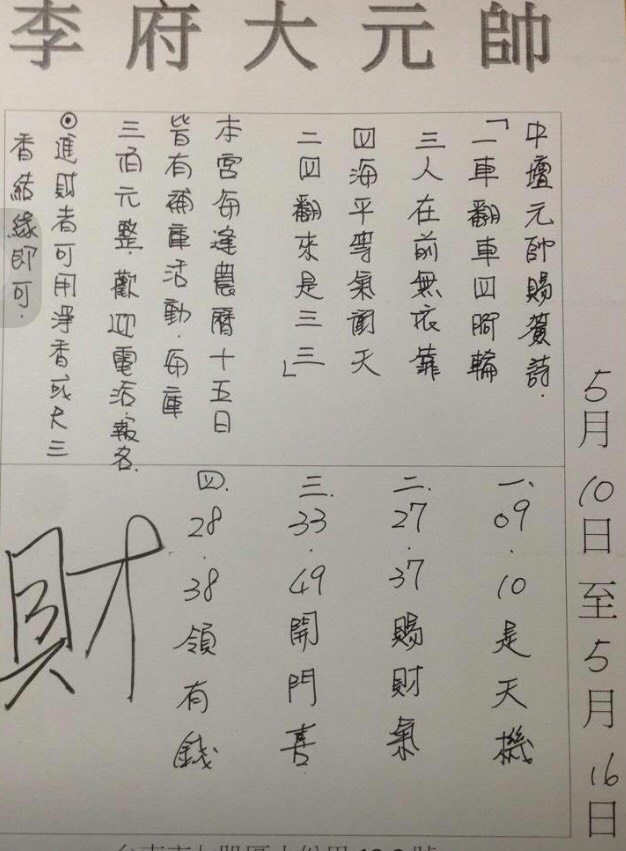 李府大元帥
5月10日至5月16日
中壇元帥賜贊詩.
「一車翻車四腳輪
三人在前無依靠
四海平等氣衝天
二四翻來是三三」
本宮每逢農曆十五日
皆有補庫活動.每庫
三佰元整.歡迎電話報名.
⊙進財者可用淨香或尺三
香結緣即可.
一、09.10是天機
二.27.37賜財氣
三.33.49開門喜
四.28.38領有錢
財